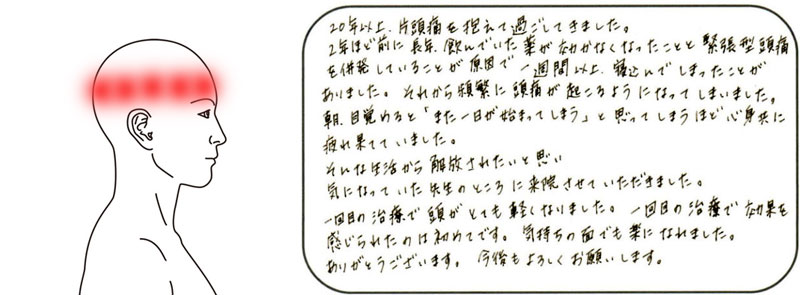 20年以上、片頭痛を抱えて過ごしてきました。
2年ほど前に長年、飲んでいた薬が効かなくなったことと緊張型頭痛
を併発していることが原因で一週間以上、寝込んでしまったことが
ありました。それから頻繁に頭痛が起こるようになってしまいました。
朝、目覚めると「また一日が始まってしまう」と思ってしまうほど心身共に
疲れ果てていました。
そんな生活から解放されたいと思い
気になっていた先生のところに来院させていただきました。
一回目の治療で頭がとても軽くなりました。一回目の治療で効果を
感じられたのは初めてです。気持ちの面でも楽になれました。
ありがとうございます。今後もよろしくお願いします。